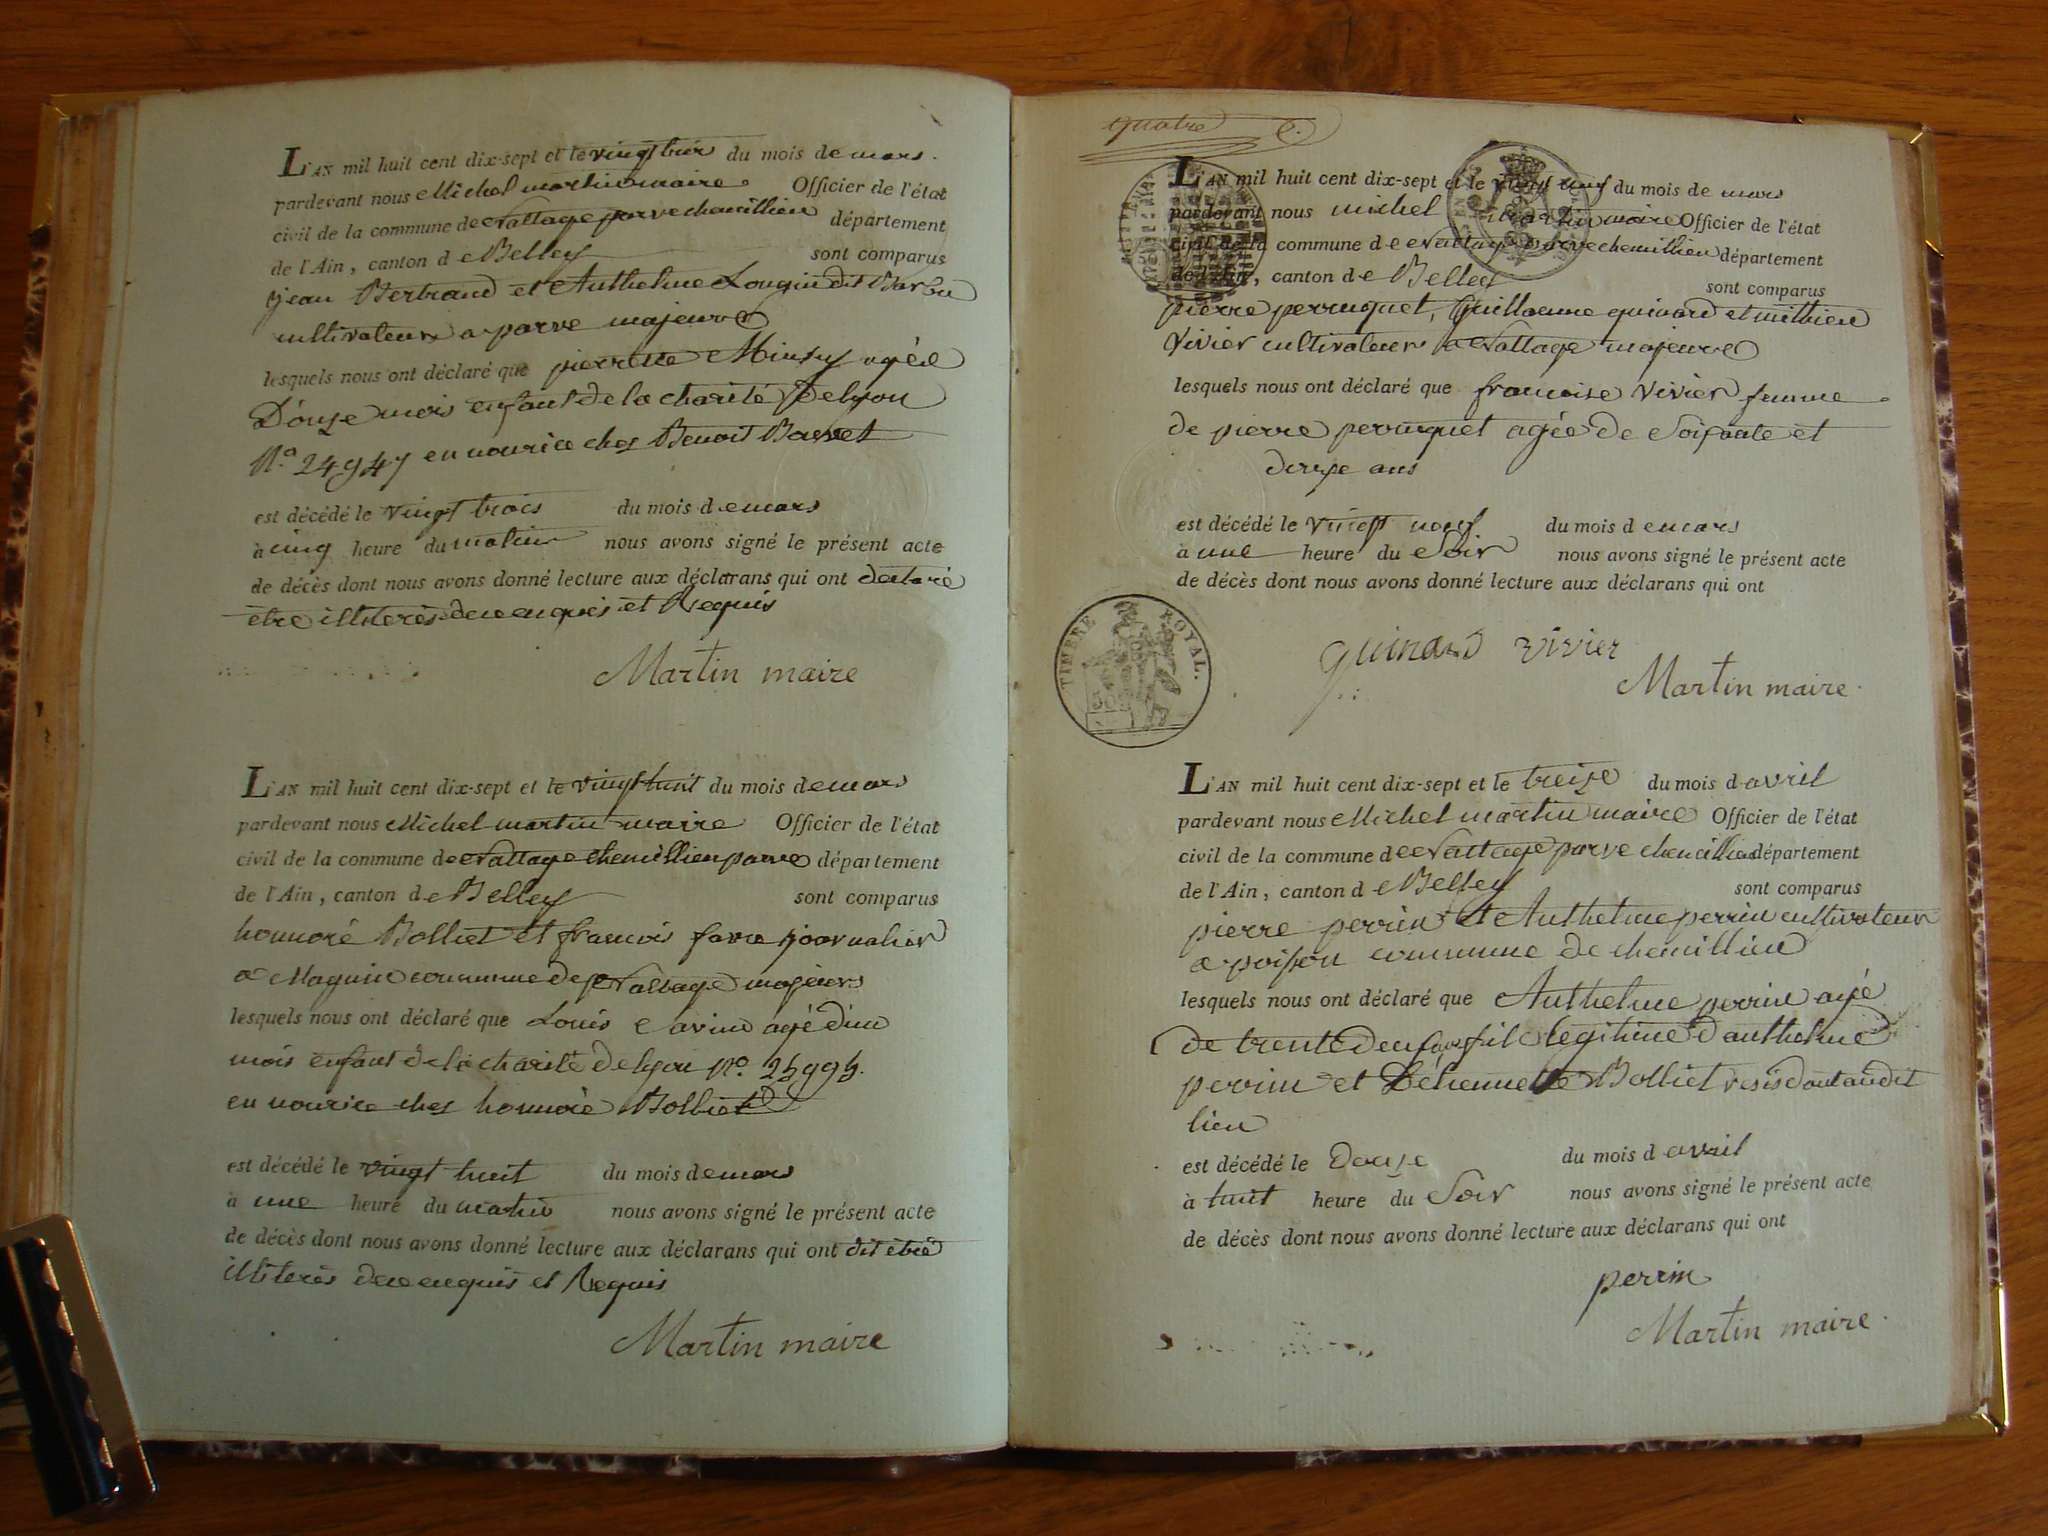 L'AN mil huit cent dix-sept et le vingt trois du mois de mars
pardevant nous Michel martin maire Officier de l'état
civil de la commune de Nattage parve chemillieu département
de l'Ain, canton de Belley sont comparus
jean Bertrand et Anthelme Lougin dit Barbu
cultivateurs a parve majeurs
lesquels nous ont déclaré que pierrette agée
Douze mois enfant de la charité De lyon
N.o 24947 en nourice chez Benoit
est décédé le vingt trois du mois de mars
à cinq heure du matin nous avons signé le présent acte
de décès dont nous avons donné lecture aux déclarans qui ont declaré
être illiterés de ce enquis et Requis
Martin maire
L'AN mil huit cent dix-sept et le vingt huit du mois de mars
pardevant nous Michel martin maire Officier de l'état
civil de la commune de Nattage chemillieu parve département
de l'Ain, canton de Belley sont comparus
honnoré Bolliet et francois favre journalier
a Maguin commune de Nattage majeurs
lesquels nous ont déclaré que Louis agé d'un
mois enfant de la charité de lyon No. 25995.
en nourice chez honnoré Bolliet
est décédé le vingt huit du mois de mars
à une heure du matin nous avons signé le présent acte
de décès dont nous avons donné lecture aux déclarans qui ont dit être
illiterés de ce enquis et Requis
Martin maire
quatre
L'AN mil huit cent dix-sept et le vingt neuf du mois de mars
pardevant nous michel martin maire Officier de l'état
civil de la commune de Nattage parve chemillieu département
de l'Ain, canton de Belley sont comparus
pierre perruquet, Guillaume guinard et mithieu
Vivier cultivateurs a Nattage majeurs
lesquels nous ont déclaré que francoise Vivier femme
de pierre perruquet agée de Soixante et
douze ans
est décédé le vingt neuf du mois de mars
à une heure du Soir nous avons signé le présent acte
de décès dont nous avons donné lecture aux déclarans qui ont
TIMBRE ROYAL.
guinard vivier
Martin maire.
L'AN mil huit cent dix-sept et le treize du mois d avril
pardevant nous Michel martin maire Officier de l'état
civil de la commune de Nattage parve chemillieu département
de l'Ain, canton de Belley sont comparus
pierre perrin et Anthelme perrin cultivateurs
a poisson commune de chemillieu
lesquels nous ont déclaré que Anthelme perrin agé
de trente deux fils legitime d'anthelme
perrin et Etiennette Bolliet residant audit
lieu
est décédé le Douze du mois d avril
à huit heure du Soir nous avons signé le présent acte
de décès dont nous avons donné lecture aux déclarans qui ont
perrin
Martin maire.